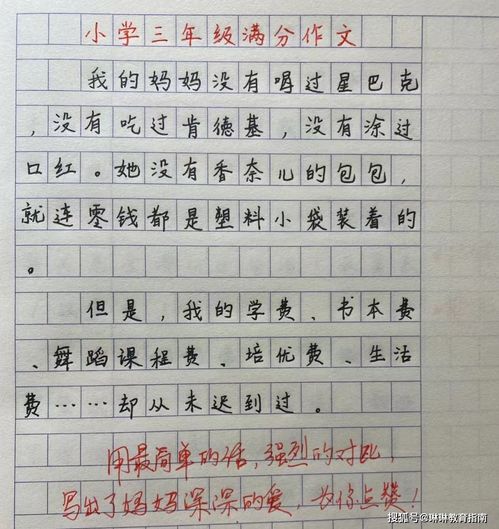 小学三年级满分作文
我的妈妈没有喝过星巴克
，没有吃过肯德基，没有涂过
口红。她没有香奈儿的包包，
就连零钱都是塑料小袋装着的
。
但是，我的学费、书本费
、舞蹈课程费、培优费、生活
费……却从未迟到过。
用最简单的话，强烈的对比，
写出了妈妈深深的爱，为你点赞！
搜狐号@琳琳教育指南